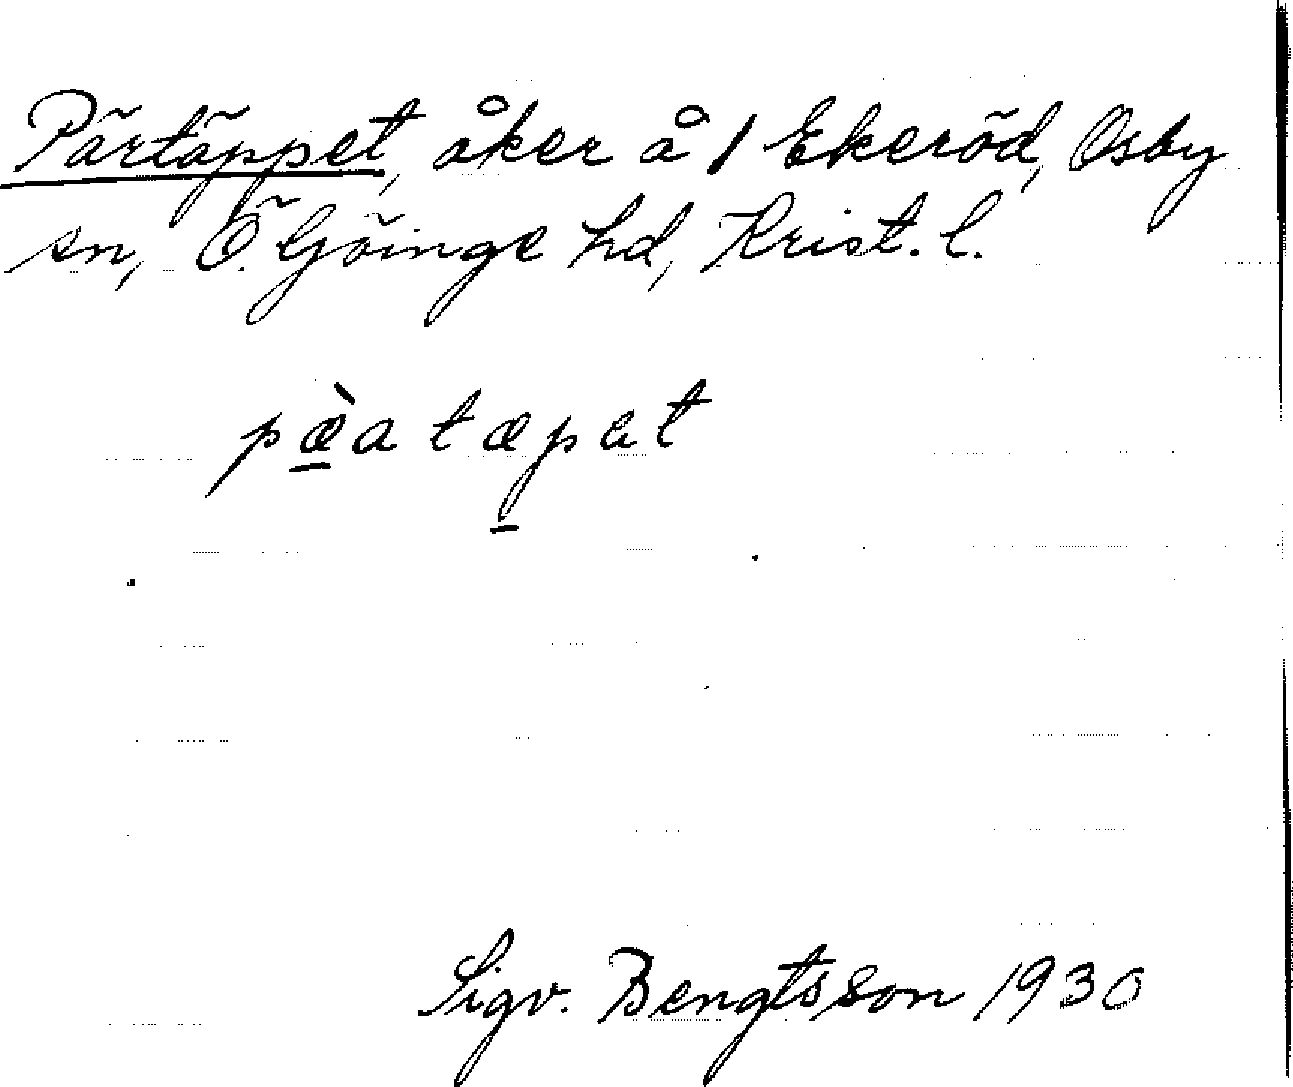 Pärtäppet, åker å 1 Ekeröd, Osby
sn, Ö. Göinge hd, Krist. l.
pæ̀a tæpet
Sigv. Bengtsson 1930